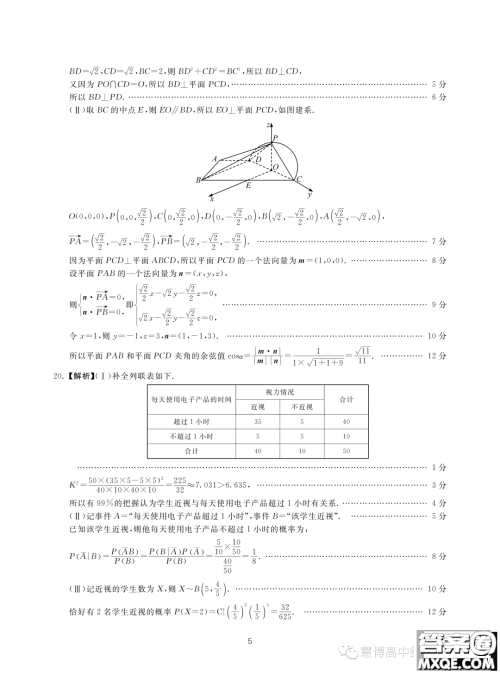 BD=√2,CD=√2,BC=2,则 BD²+CD²=BC²,所以 BD⊥CD,
又因为 PO∩CD=O,所以 BD⊥平面 PCD,…………5 分
所以 BD⊥PD.…………6 分
(Ⅱ)取 BC 的中点 E,则 EO∥BD,所以 EO⊥平面 PCD,如图建系.
z
P
A
D
O
B
E
C
x
y
O(0,0,0),P(0,0,√2/2),C(0,√2/2,0),D(0,-√2/2,0),B(√2,-√2/2,0),A(√2/2,-√2,0),
PA=(√2/2,-√2,-√2/2),PB=(√2,-√2/2,-√2/2).…………7 分
因为平面 PCD⊥平面 ABCD,所以平面 PCD 的一个法向量为 m=(1,0,0).…………8 分
设平面 PAB 的一个法向量为 n=(x,y,z),
则{n·PA=0, n·PB=0, 即{√2/2x-√2y-√2/2z=0, √2x-√2/2y-√2/2z=0,…………9 分
令 x=1,则 y=-1,z=3,n=(1,-1,3).…………10 分
所以平面 PAB 和平面 PCD 夹角的余弦值 cosα=|m·n|/|m||n|=1/(1×√1+1+9)=√11/11.…………12 分
20.【解析】(Ⅰ)补全列联表如下.
每天使用电子产品的时间 视力情况 合计
近视 不近视
超过 1 小时 35 5 40
不超过 1 小时 5 5 10
合计 40 10 50
…………1 分
K²=50×(35×5-5×5)²/(40×10×40×10)=225/32≈7.031>6.635,…………3 分
所以有 99%的把握认为学生近视与每天使用电子产品超过 1 小时有关系.…………4 分
(Ⅱ)记事件 A="每天使用电子产品超过 1 小时",事件 B="该学生近视".…………5 分
已知该学生近视,则他每天使用电子产品不超过 1 小时的概率为:
P(Ā|B)=P(ĀB)/P(B)=P(B|Ā)P(Ā)/P(B)=(5/10×10/50)/(40/50)=1/8.…………8 分
(Ⅲ)记近视的学生数为 X,则 X~B(5,4/5).…………10 分
恰好有 2 名学生近视的概率 P(X=2)=C₅²(4/5)²(1/5)³=32/625.…………12 分
5
慧博高中
答案圈
MXQE.COM